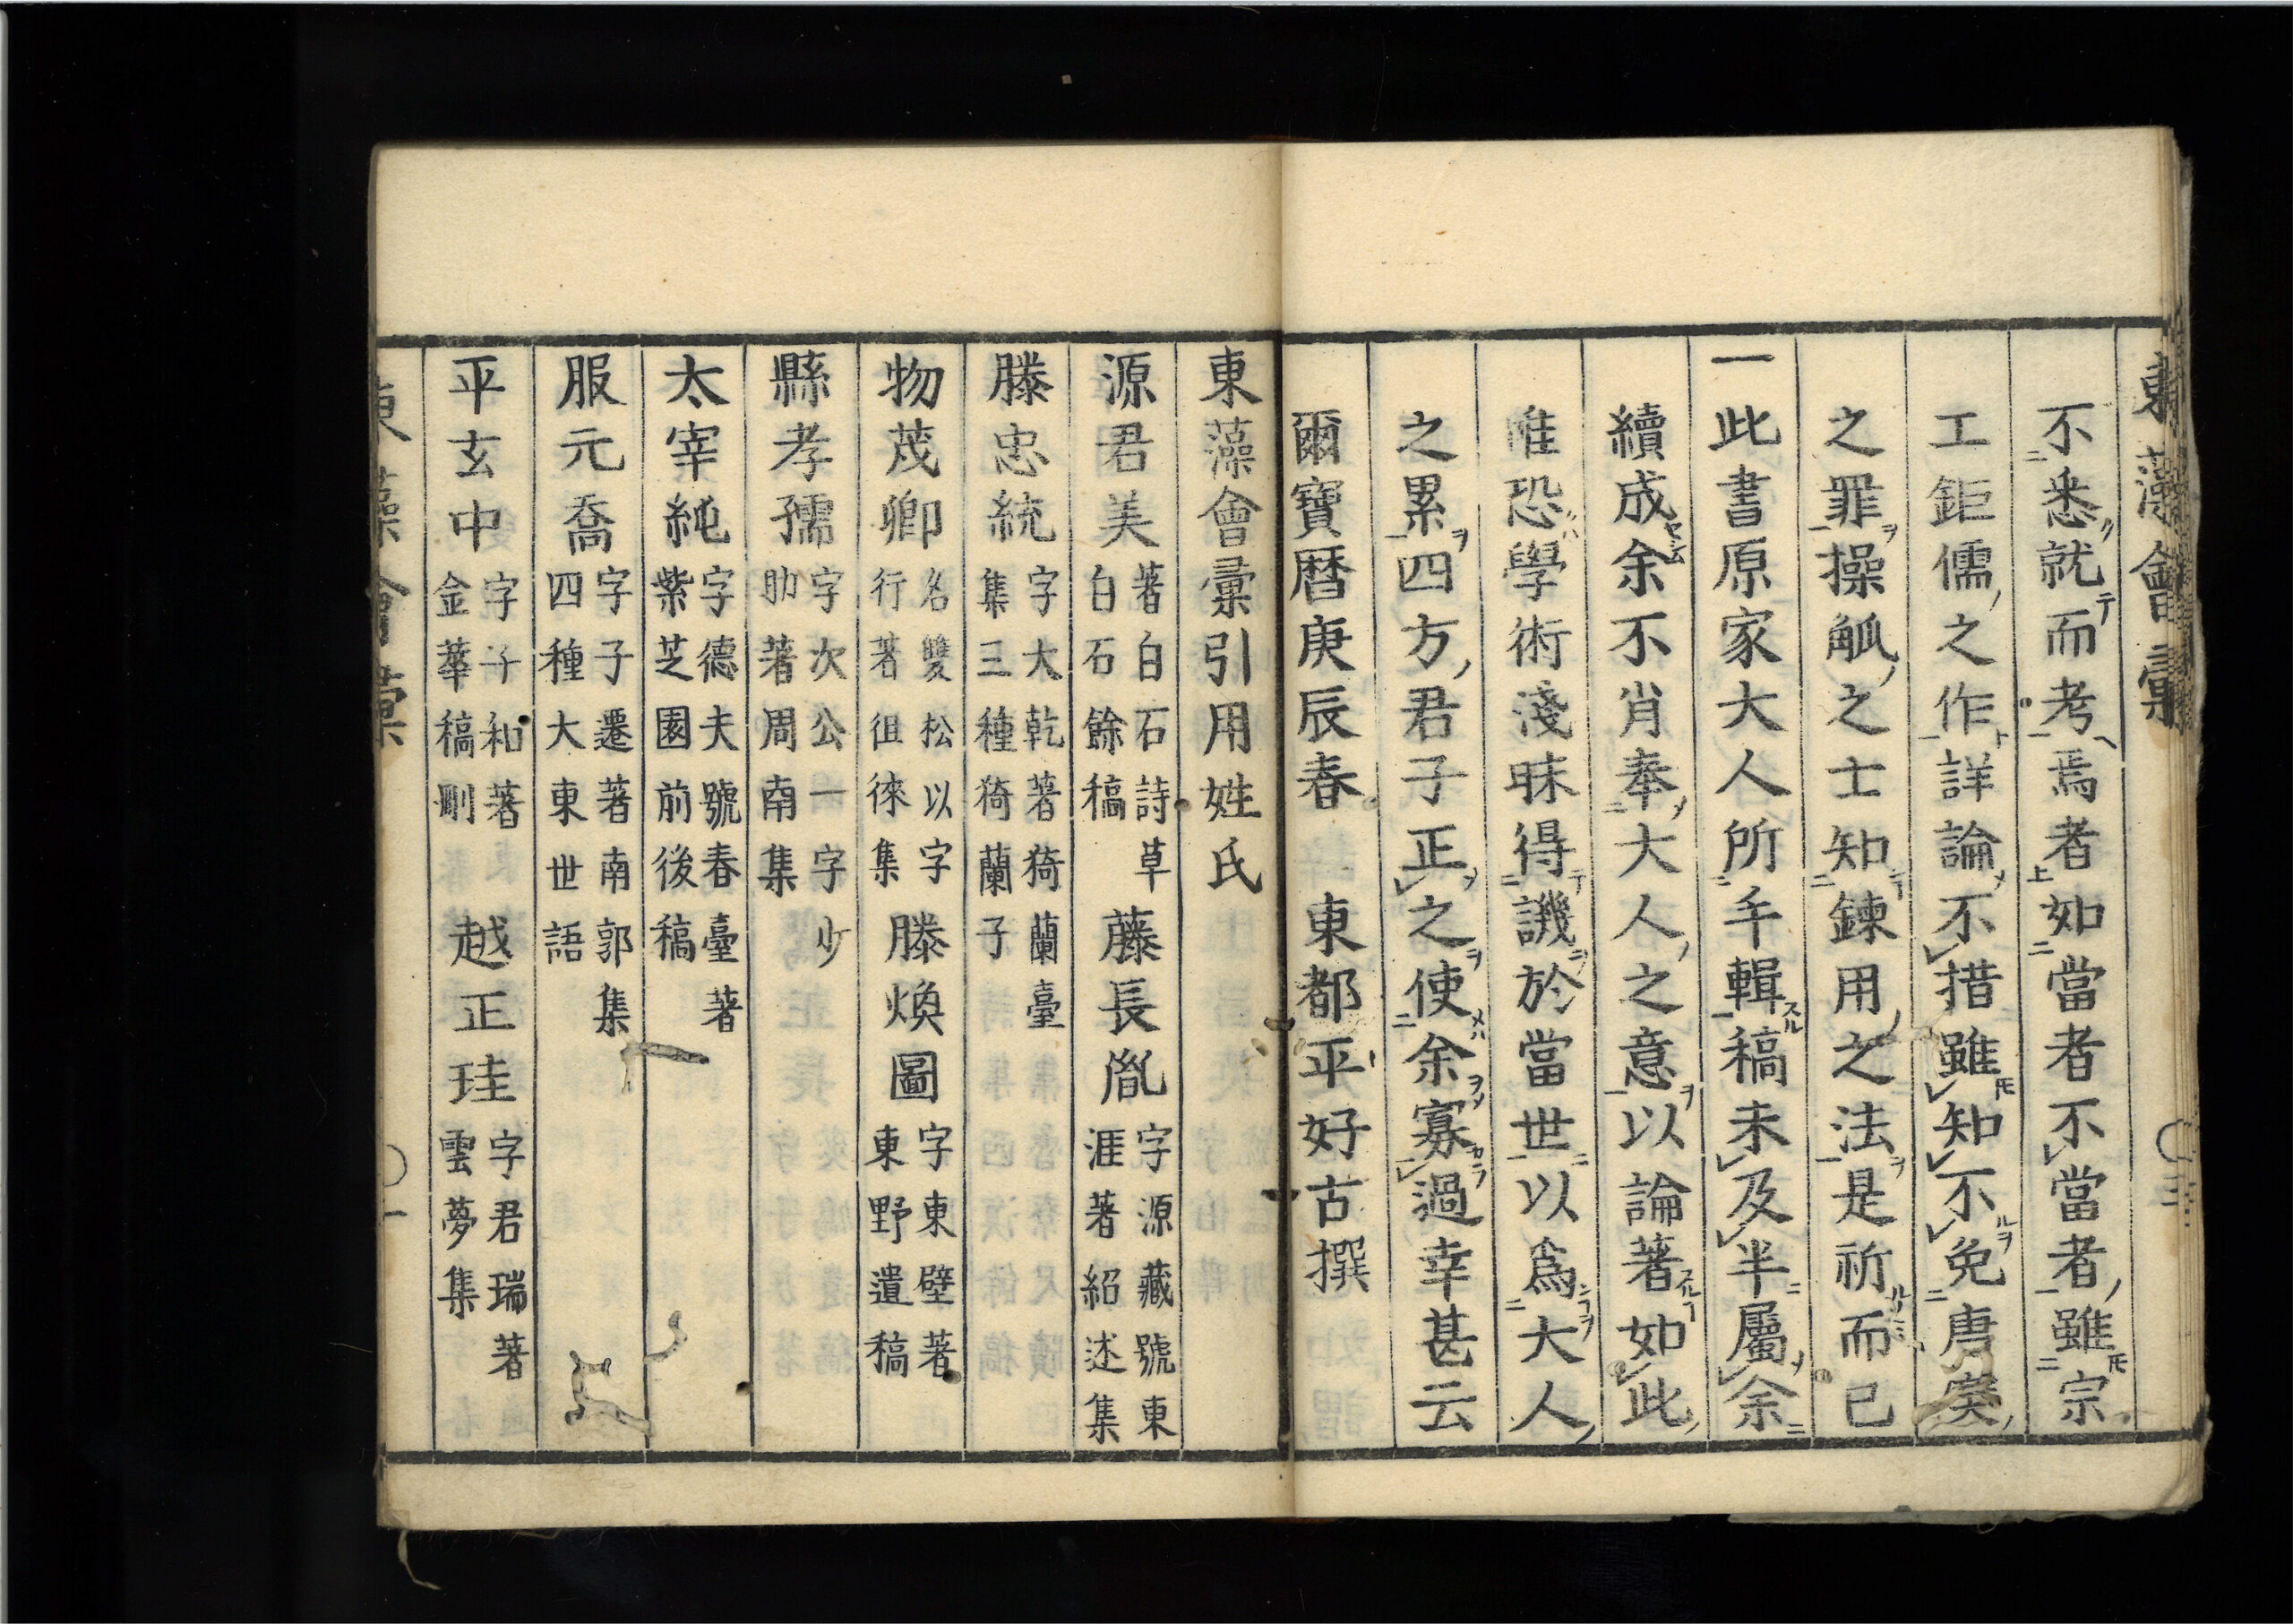 東藻會彙 ○三
不悉就而考焉者如當者不當者雖宗
工鉅儒之作詳論不措雖知不免唐突
之罪操觚之士知鍊用之法是祈而已
一此書原家大人所手輯稿未及半屬余
續成余不肖奉大人之意以論著如此
唯恐學術淺昧得譏於當世以爲大人
之累四方君子正之使余寡過幸甚云
爾寶暦庚辰春 東都平好古撰
東藻會彙引用姓氏
源君美 著白石詩草
白石餘稿
藤長胤 字源藏號東
涯著紹述集
滕忠統 字大乾著猗蘭臺
集三種猗蘭子
物茂卿 名雙松以字
行著徂徠集
滕煥圖 字東壁著
東野遺稿
縣孝孺 字次公一字少
助著周南集
太宰純 字德夫號春臺著
紫芝園前後稿
服元喬 字子遷著南郭集
四種大東世語
平玄中 字子和著
金華稿刪
越正珪 字君瑞著
雲夢集
東藻會彙 ○一